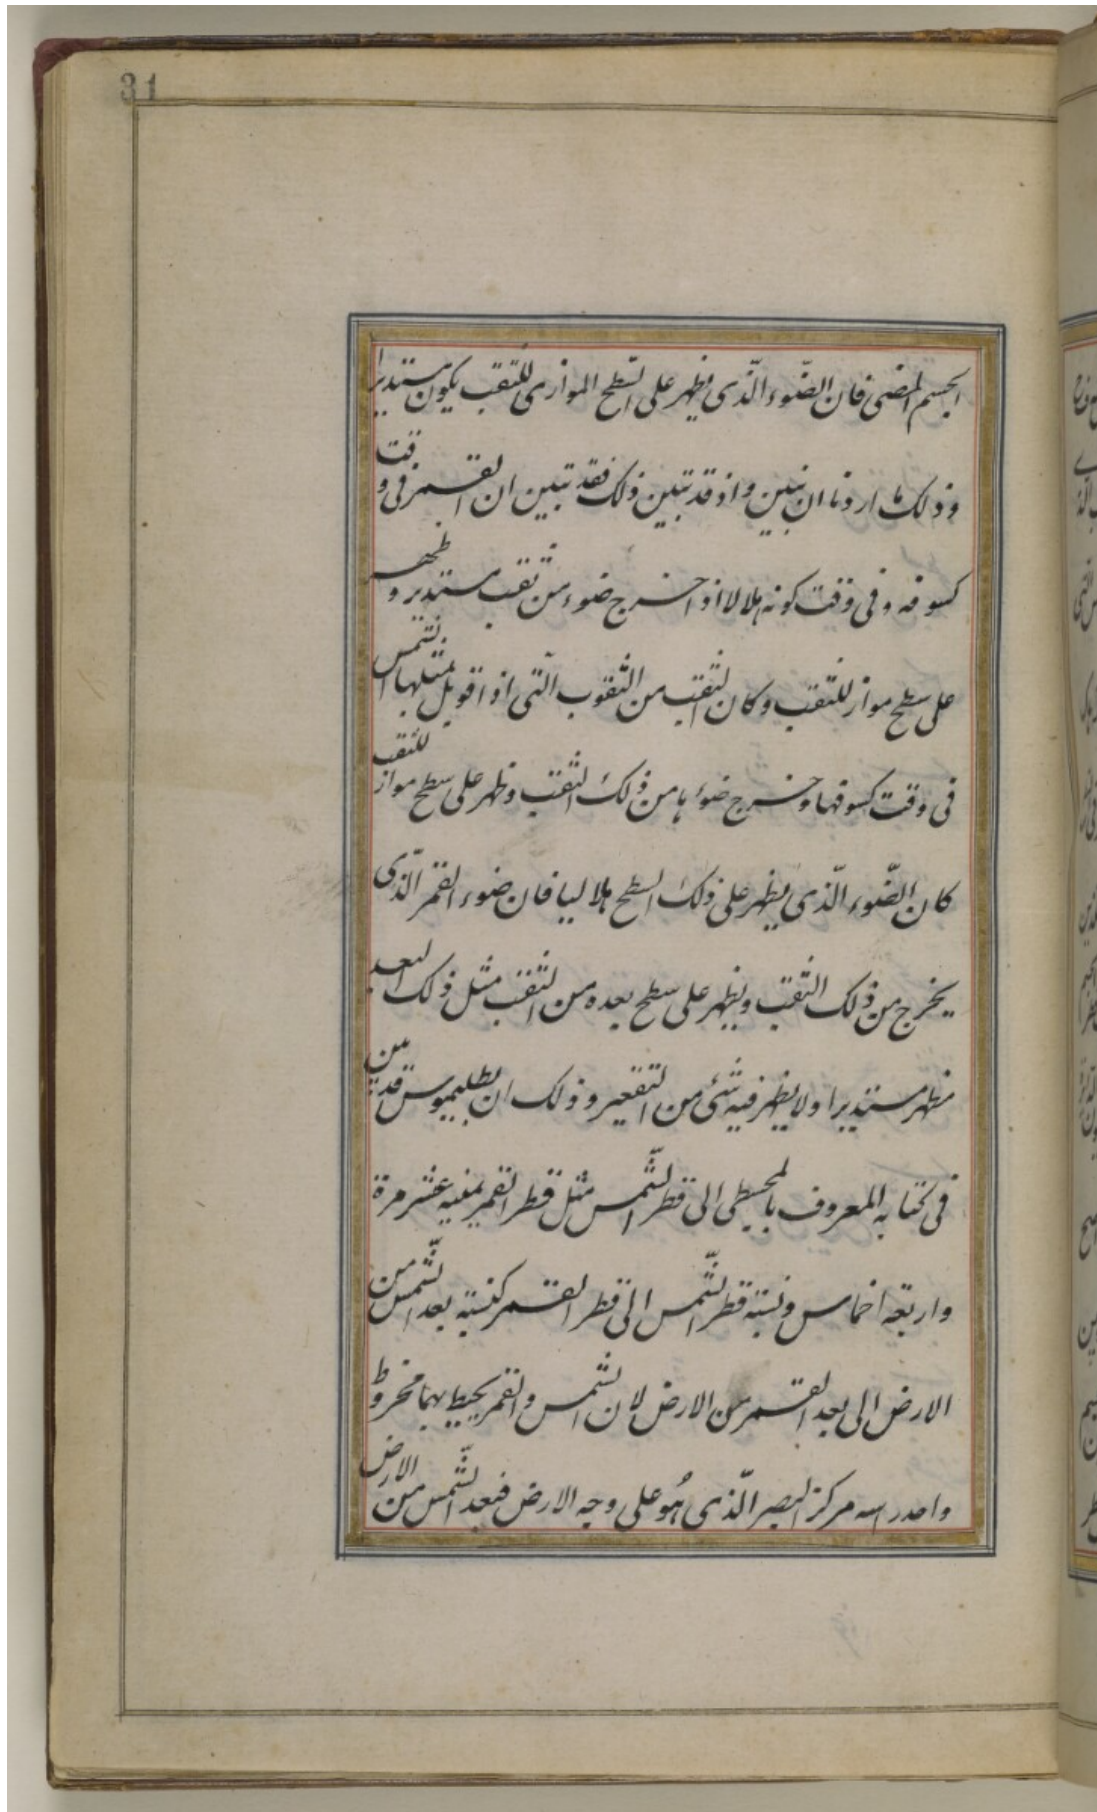 31
الجسم المضى فان الضّوء الّذى يظهر على السّطح الموازى للثقب يكون مستديرا
وذلك ما اردنا ان نبين واذ قد تبين ذلك فقد تبين ان القمر فى وقت
كسوفه وفى وقت كونه هلالا اذا خرج ضوء من ثقب مستدير وظهر
على سطح مواز للثقب وكان الثقب من الثقوب الّتى اذا قوبل بمثلها الشمس
فى وقت كسوفها وخرج ضوءها من ذلك الثقب وظهر على سطح مواز للثقب
كان الضّوء الّذى يظهر على ذلك السطح هلاليا فان ضوء القمر الّذى
يخرج من ذلك الثقب ويظهر على سطح بعده من الثقب مثل ذلك البعد
مظهر مستديرا ولا يظهر فيه شئ من التقعير وذلك ان بطلميوس قد بين
فى كتابه المعروف بالمجسطى الى قطر الشّمس مثل قطر القمر ثمنيه عشر مرة
واربعه اخماس ونسبة قطر الشّمس الى قطر القمر كنسبة بعد الشّمس من
الارض الى بعد القمر من الارض لان الشمس والقمر يحيط بهما مخروط
واحد راسه مركز البصر الّذى هُو على وجه الارض فبعد الشّمس من الارض